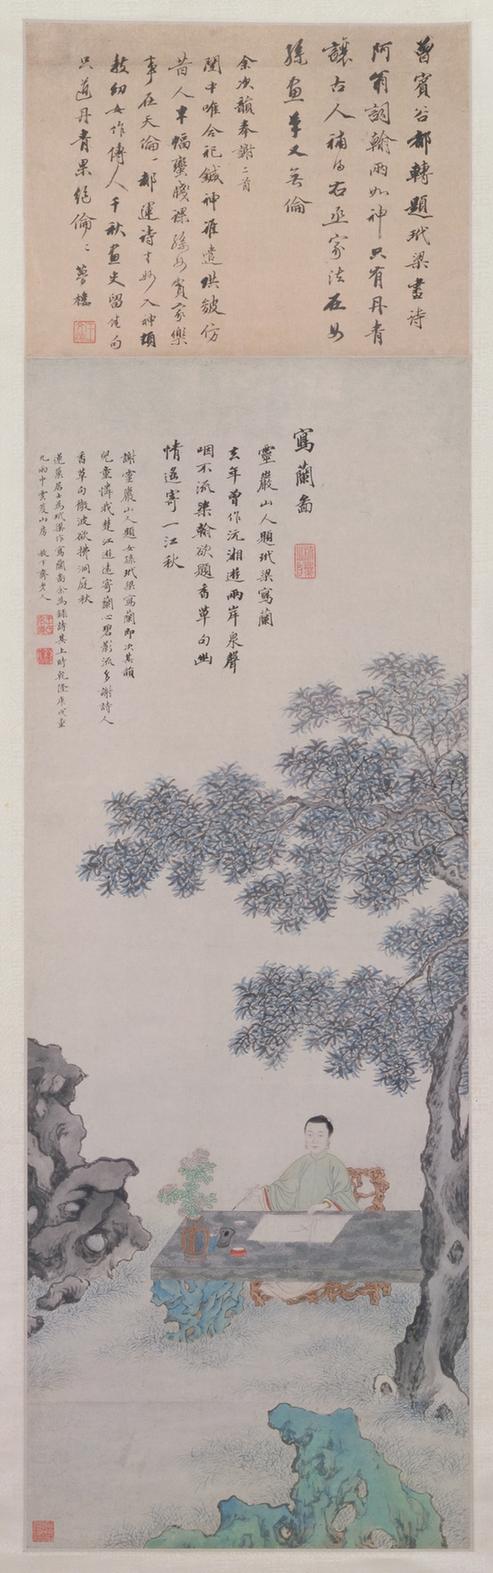 曾賓谷都轉題玳梁畫詩
阿翁詞翰兩如神只有丹青
讓古人補得右丞家法在女
孫畫筆又無倫
余次韻奉謝二首
閨中唯合祀鍼神誰遣皴仿
昔人半幅蠻牋貧家樂
事在天倫 都運詩才妙入神頻
教幼女作傳人千秋畫史留佳句
只道丹青果絕倫 夢樓
寫蘭圖
靈巖山人題玳梁寫蘭
去年曾作沅湘遊兩岸泉聲
咽不流染翰欲題香草句幽
情遙寄一江秋
謝靈巖山人題女孫玳梁寫蘭即次其韻
兒童憐我楚江遊遠寄蘭心碧影流多謝詩人
香草句微波欲拂洞庭秋
蓮巢居士為玳梁作寫蘭圖余為錄詩其上時乾隆庚戌重
九雨中書山房 齋老人